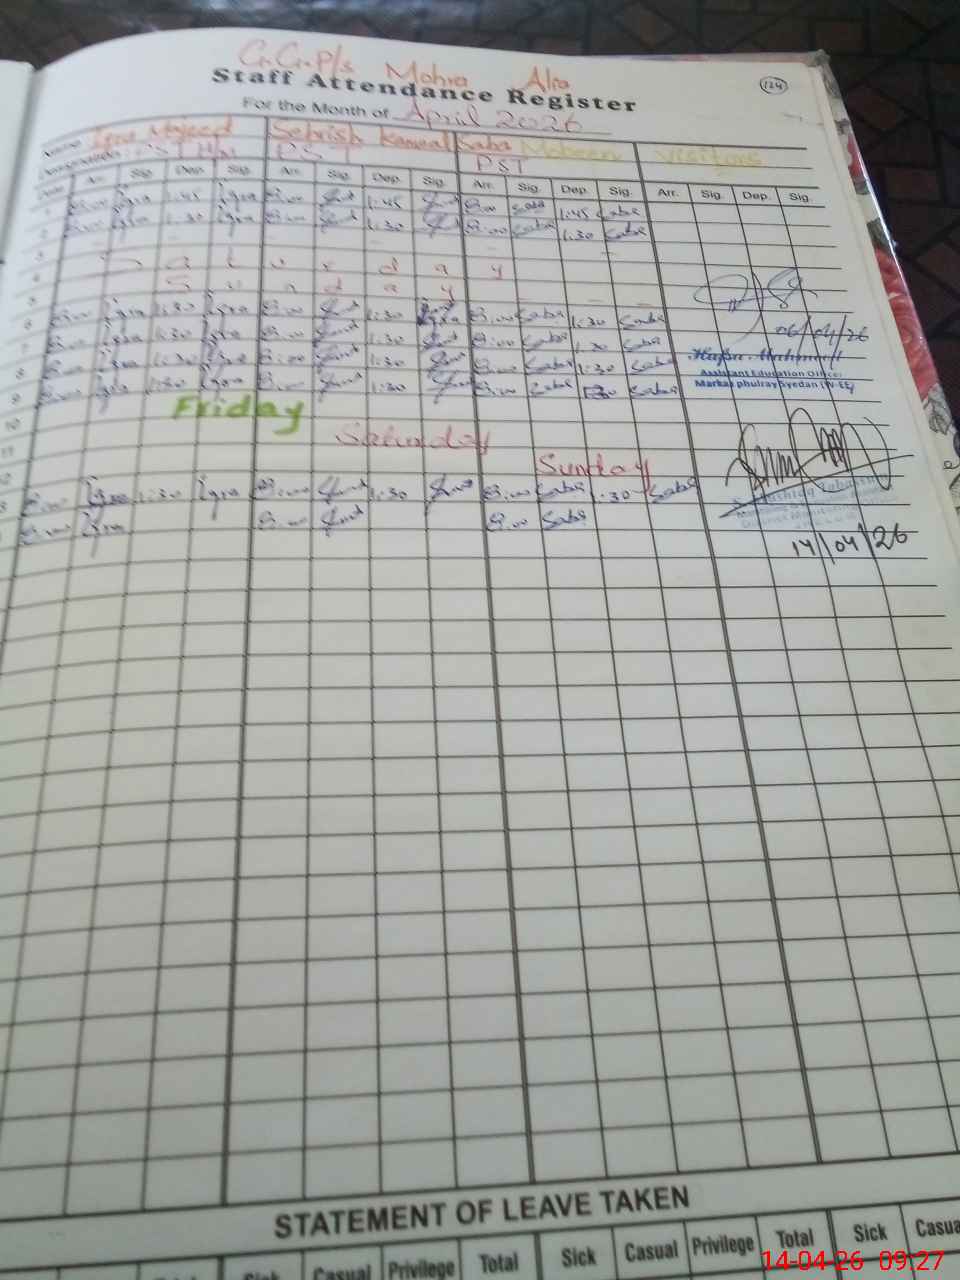 G.G.P/s Mohra Alia
124
Staff Attendance Register
For the Month of April 2026
Name Iqra Majeed Sehrish Kanwal Saba Mobeen Visitors
Designation PST PST
Date Arr. Sig. Dep. Sig. Arr. Sig. Dep. Sig. Arr. Sig. Dep. Sig. Arr. Sig. Dep. Sig.
1 8:00 Iqra 1:45 Iqra 8:00 1:45 8:00 Saba 1:45 Saba
2 8:00 Iqra 1:30 Iqra 8:00 1:30 8:00 Saba 1:30 Saba
3
4 Saturday
5 Sunday
6 8:00 Iqra 1:30 Iqra 8:00 1:30 8:00 Saba 1:30 Saba
06/04/26
7 8:00 Iqra 1:30 Iqra 8:00 1:30 8:00 Saba 1:30 Saba
8 8:00 Iqra 1:30 Iqra 8:00 1:30 8:00 Saba 1:30 Saba
Assistant Education Officer
9 8:00 Iqra 1:30 Iqra 8:00 1:30 8:00 Saba 1:30 Saba
Markaz phulray Syedan (W-EE)
10 Friday
11 Saturday
12 Sunday
8:00 Iqra 1:30 Iqra 8:00 1:30 8:00 Saba 1:30 Saba
8:00 Iqra 8:00 8:00 Saba
14/04/26
STATEMENT OF LEAVE TAKEN
Sick Casual Privilege Total Sick Casual Privilege Total Sick
14-04-26 09:27